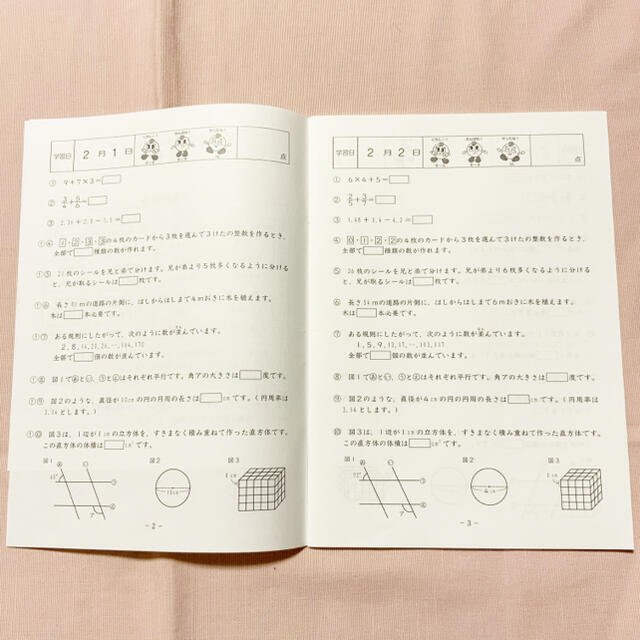 学習日 2月1日 点
① 9+7×3=
②
③ 2.36+2.8-3.1=
④ 1・2・3・3の4枚のカードから3枚を選んで3けたの整数を作るとき、
全部で 種類の数が作れます。
⑤ 21枚のシールを兄と弟で分けます。兄が弟より5枚多くなるように分ける
と、兄が取るシールは 枚です。
⑥ 長さ mの道路の片側に、はしからはしまで4mおきに木を植えます。
木は 本必要です。
⑦ ある規則にしたがって、次のように数が並んでいます。
2, 8, 14, 20, 26, …, 164, 170
全部で 個の数が並んでいます。
⑧ 図1であとい، うとえはそれぞれ平行です。角アの大きさは 度です。
⑨ 図2のような、直径が10cmの円の円周の長さは cmです。(円周率は
3.14とします。)
⑩ 図3は、1辺が1cmの立方体を、すきまなく積み重ねて作った直方体です。
この直方体の体積は cm³です。
図1 図2 図3
あ い う え ア
10cm
1cm
-2-
学習日 2月2日 点
① 6×4+5=
② 2/5+3/4=
③ 1.48+3.6-4.2=
④ 0・1・2・2の4枚のカードから3枚を選んで3けたの整数を作るとき、
全部で 種類の数が作れます。
⑤ 26枚のシールを兄と弟で分けます。兄が弟より6枚多くなるように分ける
と、兄が取るシールは 枚です。
⑥ 長さ54mの道路の片側に、はしからはしまで6mおきに木を植えます。
木は 本必要です。
⑦ ある規則にしたがって、次のように数が並んでいます。
1, 5, 9, 13, 17, …, 113, 117
全部で 個の数が並んでいます。
⑧ 図1であとい、うとえはそれぞれ平行です。角アの大きさは 度です。
⑨ 図2のような、直径が4cmの円の円周の長さは cmです。(円周率は
3.14とします。)
⑩ 図3は、1辺が1cmの立方体を、すきまなく積み重ねて作った直方体です。
この直方体の体積は cm³です。
図1 図2 図3
あ い う え ア
4cm
1cm
-3-